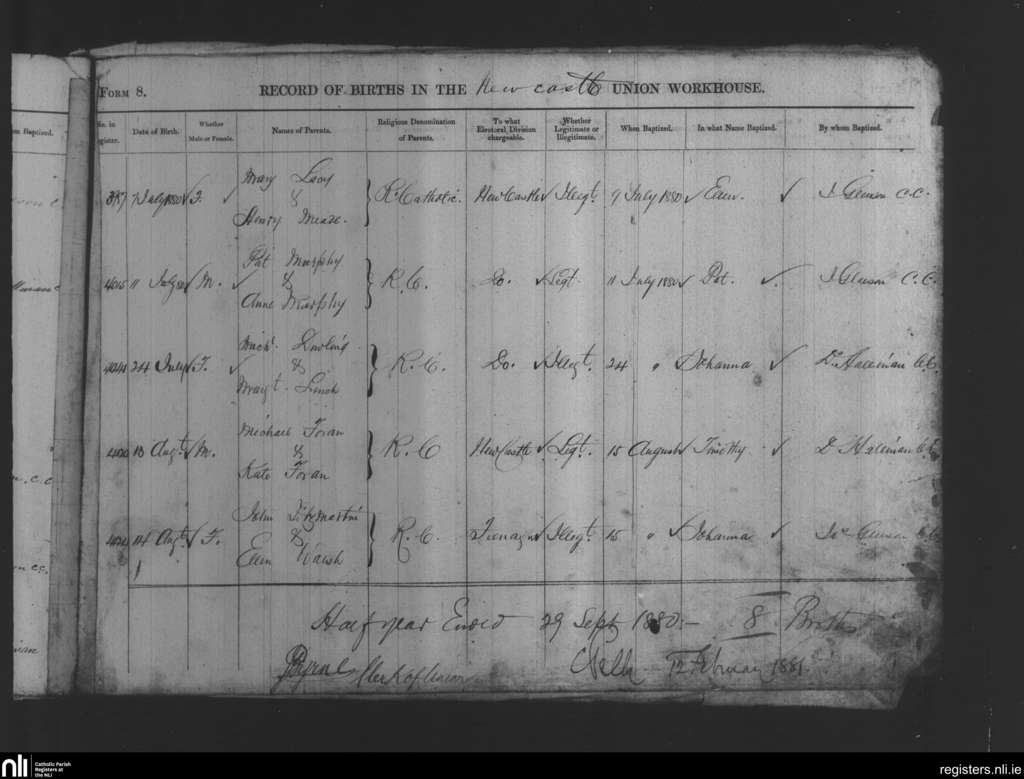 on Baptized.
FORM 8. RECORD OF BIRTHS IN THE New castle UNION WORKHOUSE.
No. in Register. Date of Birth. Whether Male or Female. Names of Parents. Religious Denomination of Parents. To what Electoral Division chargeable. Whether Legitimate or Illegitimate. When Baptized. In what Name Baptized. By whom Baptized.
7 July 1880 F. Mary & Henry R. Catholic. NewCastle Illegt. 9 July 1880 Ellen J Gleeson C.C.
11 July M. Pat Murphy & Anne Murphy R.C. Do. Legt. 11 July 1880 Pat. J Gleeson C.C.
24 July F. Michl. Dowling & Margt. R.C. Do. Illegt. 24 " Johanna Dd. Halleinan C.C.
13 Augt. M. Michael Foran & Kate Foran R.C NewCastle Legt. 15 August Timothy D Halleinan C.C.
14 Augt. F. John & Ellen Walsh R.C. Illegt. 15 " Johanna Gleeson C.C.
Half year Ended 29 Sept 1880 - 8 Births
Byrne Clerk of Union 12 February 1881.
nli Catholic Parish Registers at the NLI
registers.nli.ie